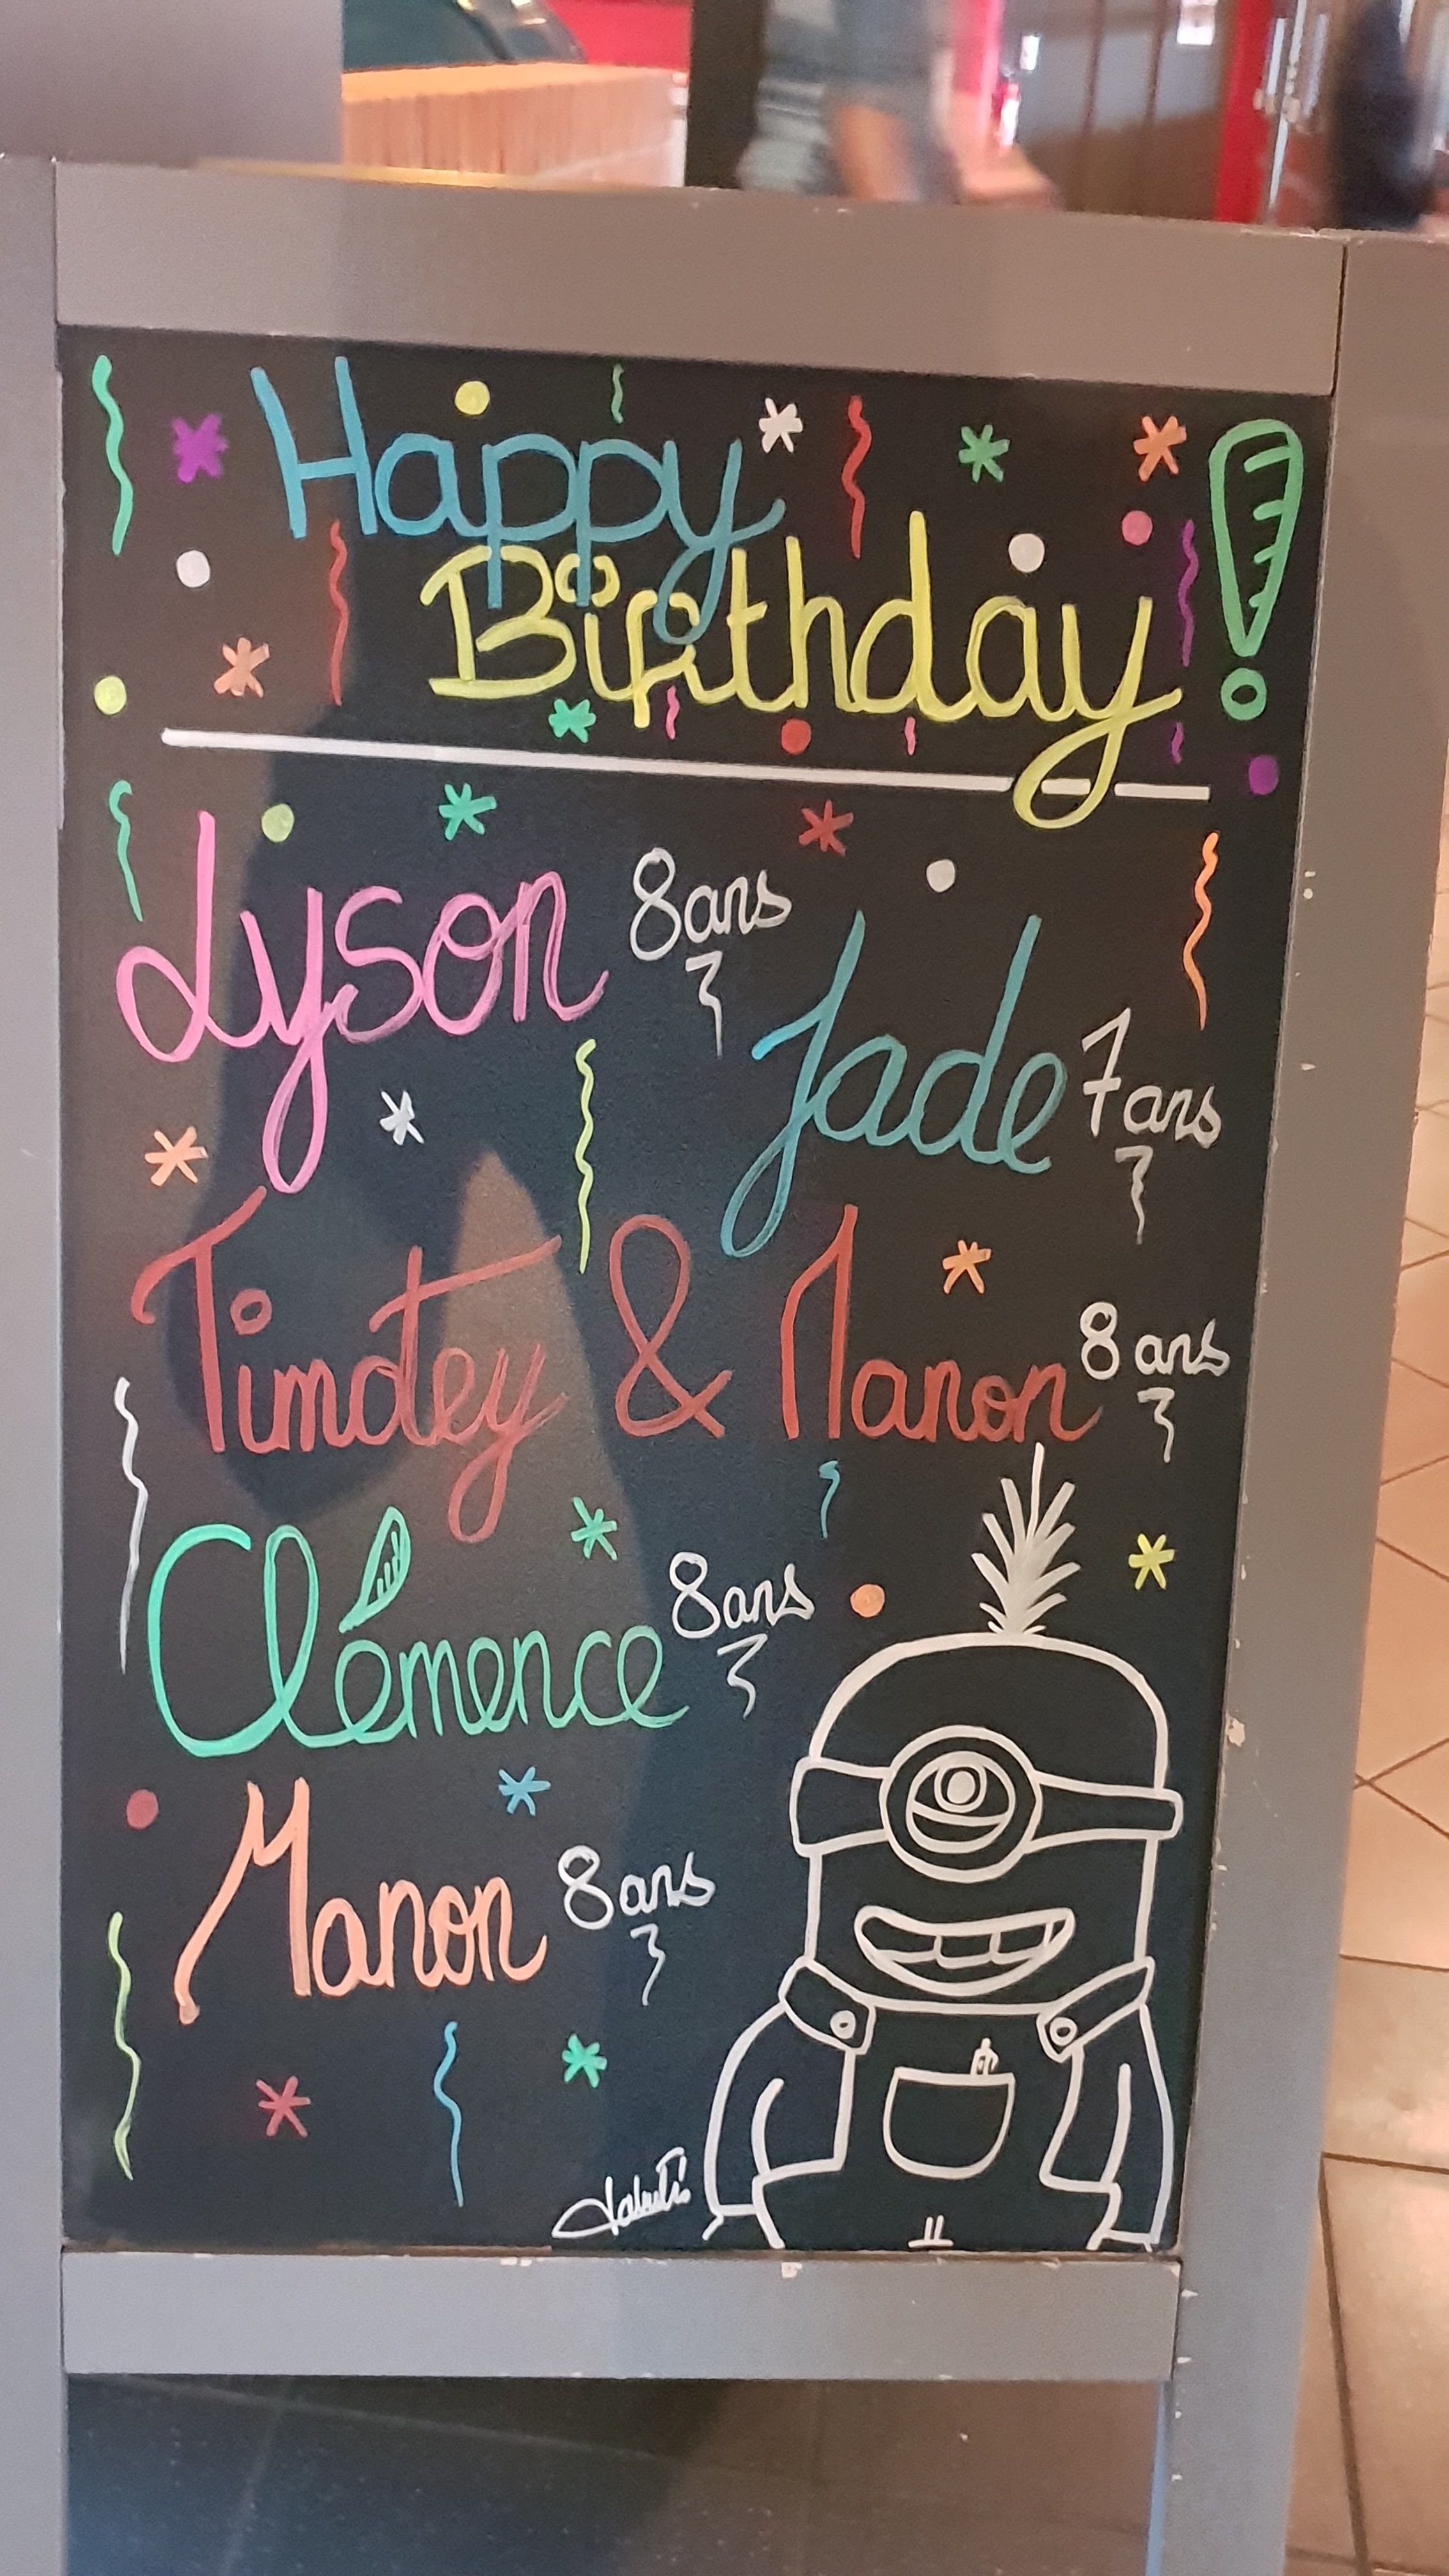 Happy
Birthday !
Lyson 8 ans
Jade 7 ans
Timotey & Manon 8 ans
Clémence 8 ans
Manon 8 ans